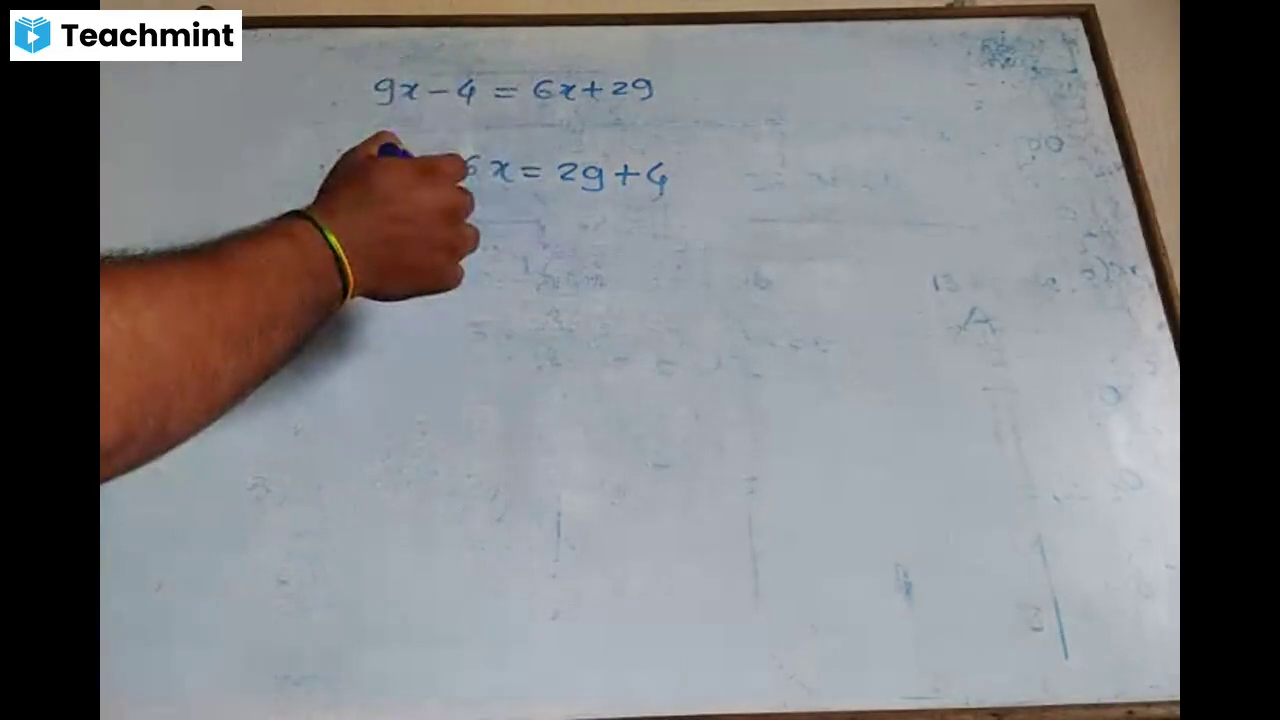 Teachmint
9x - 4 = 6x + 29
6x = 29 + 4